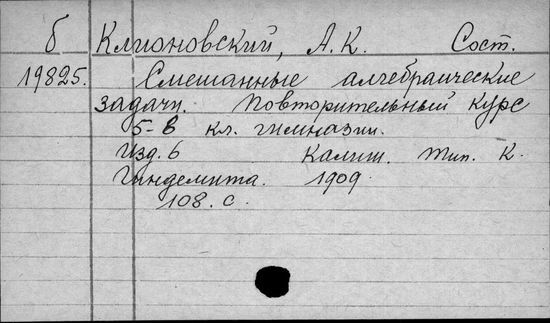 б Клионовский, А.К. Сост.
19825. Смешанные алгебраические
задачи. Повторительный курс
5-8 кл. гимназии.
Изд. 6 Калиш. Тип. К.
Гиндемита. 1909.
108. с.